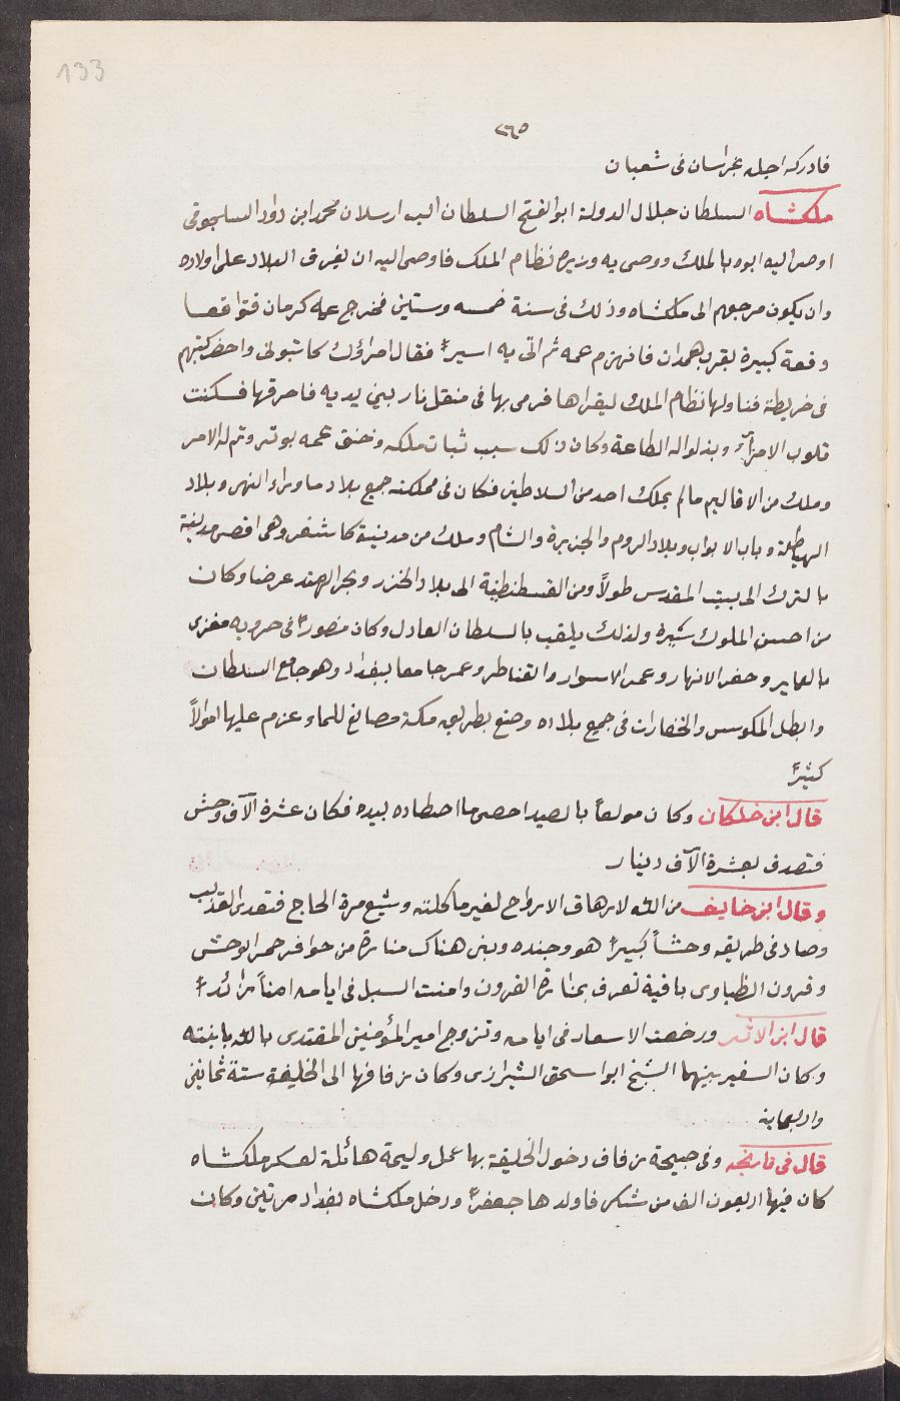 133
٢٦٥
فادركه اجله بخراسان فى شعبان
ملكشاه السلطان جلال الدولة ابوالفتح السلطان الب ارسلان محمد ابن داود السلجوقى
اوصى اليه ابوه بالملك ووصى به وزيره نظام الملك فاوصى اليه ان يفرق البلاد على اولاده
وان يكون مرجعهم الى ملكشاه وذلك فى سنة خمسه وستين فخرج عمه كرمان فتواقعا
وقعة كبيرة بقرب همدان فانهزم عمه ثم اتى به اسيرا فقال امراؤك كاتبونى واحضر كتبهم
فى خريطة فناولها نظام الملك ليقراها فرمى بها فى منقل نار بين يديه فاحرقها فسكنت
قلوب الامرآء وبذلوا له الطاعة وكان ذلك سبب ثبات ملكه وخنق عمه بوتر وتم له الامر
وملك من الاقاليم مالم يملك احد من السلاطين فكان فى مملكته جميع بلاد ماوراء النهر وبلاد
الهياطلة وباب الابواب وبلاد الروم والجزيرة والشام وملك من مدينة كاشغر وهى اقصى مدينة
بالترك الى بيت المقدس طولاً ومن القسطنطينة الى بلاد الخزر وبحر الهند عرضا وكان
من احسن الملوك سيرة ولذلك يلقب بالسلطان العادل وكان منصورا فى حروبه مغرى
بالعماير وحفر الانهار وعمر الاسوار والقناطر وعمر جامعا ببغداد وهو جامع السلطان
وابطل المكوس والخفارات فى جميع بلاده وصنع بطريق مكة مصانع للماء وغرم عليها اموالاً
كثيرًا
قال ابن خلكان وكان مولعاً بالصيد احصى ما اصطاده بيده فكان عشرة الآف وحش
فتصدق بعشرة الآف دينار
وقال ابن خايف من الله لازهاق الارواح لغير مأكلته وشيع مرة الحاج فتعدى العذيب
وصاد فى طريقه وحشاً كبيرًا هو وجنده وبنى هناك منارة من حوافر حمر الوحش
وقرون الظباء باقية تعرف بمنارة القرون وامنت السبل فى ايامه امناً زائدًا
قال ابن الاثير ورخصت الاسعار فى ايامه وتزوج امير المؤمنين المقتدى بالله بابنته
وكان السفير بينهما الشيخ ابو اسحق الشيرازى وكان زفافها الى الخليفة سنة ثمانين
واربعماية
قال فى تاريخه وفى صبيحة زفاف دخول الخليفة بها عمل وليمة هائلة لعسكر ملكشاه
كان فيها اربعون الف من شكر فاولدها جعفرًا ودخل ملكشاه بغداد مرتين وكان